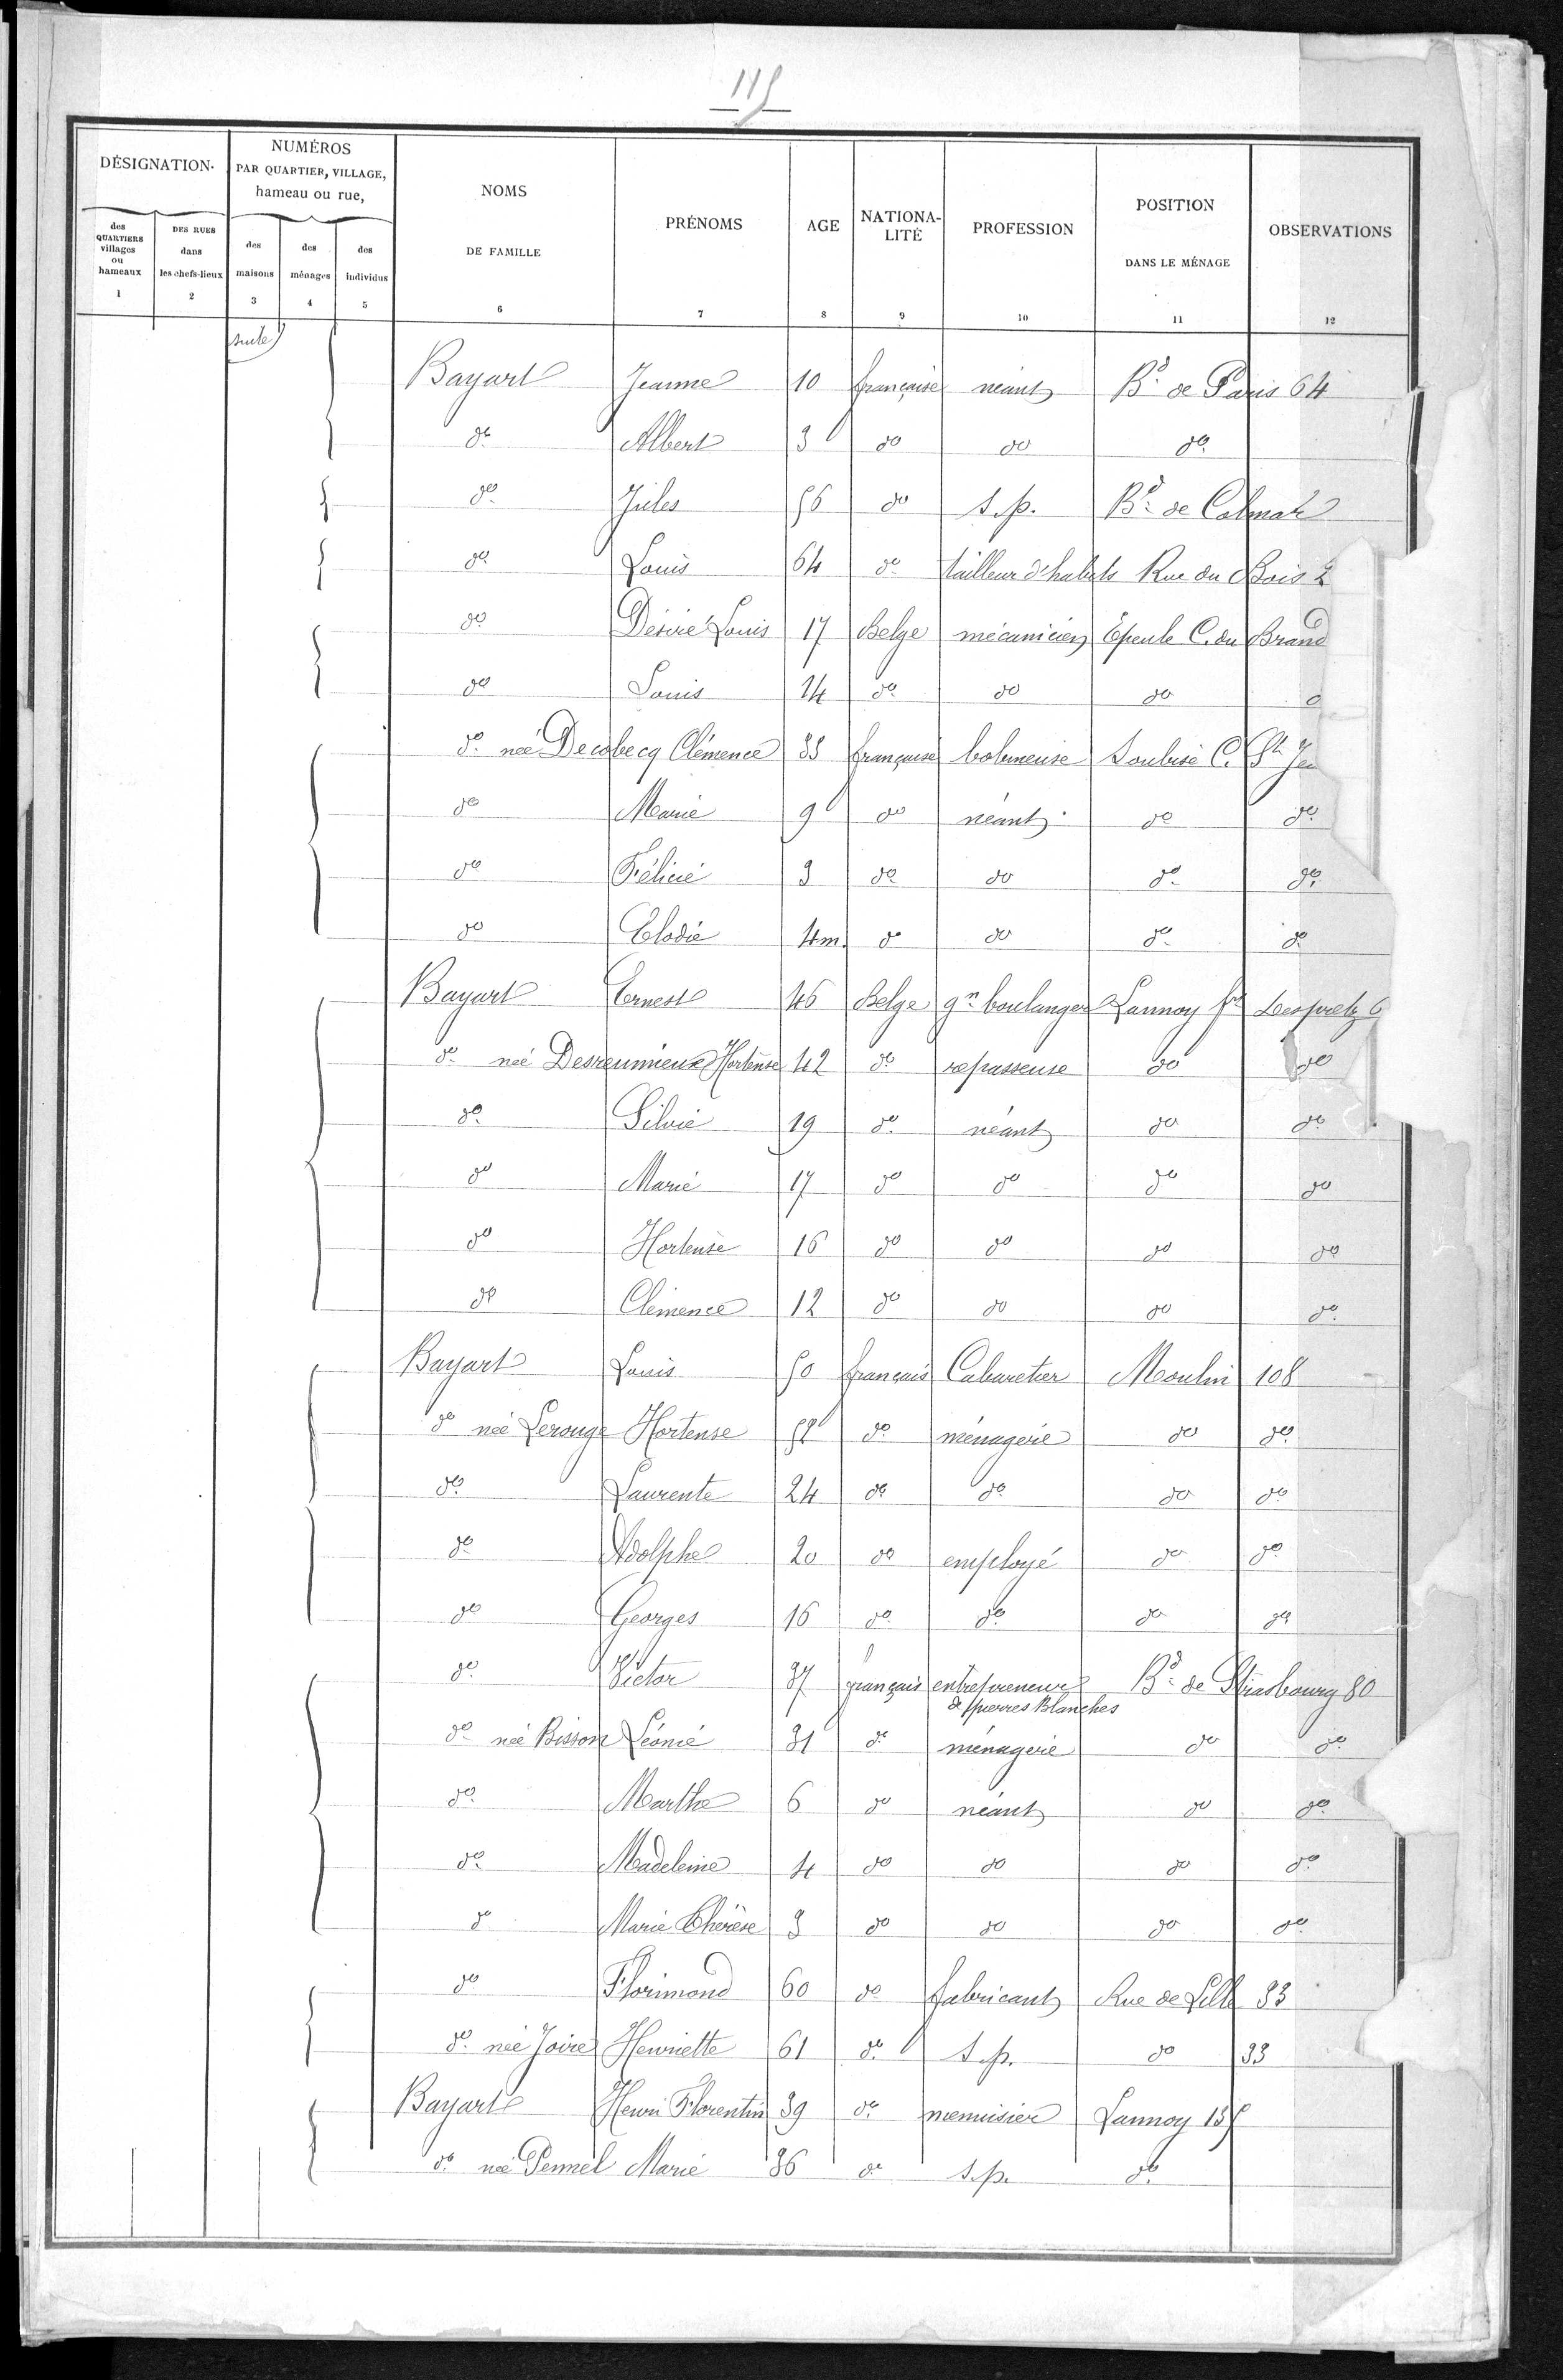 115
DÉSIGNATION.
NUMÉROS
PAR QUARTIER, VILLAGE,
hameau ou rue,
NOMS
DE FAMILLE
PRÉNOMS
AGE
NATIONA-
LITÉ
PROFESSION
POSITION
DANS LE MÉNAGE
OBSERVATIONS
des
QUARTIERS
villages
ou
hameaux
DES RUES
dans
les chefs-lieux
des
maisons
des
ménages
des
individus
1 2 3 4 5 6 7 8 9 10 11 12
suite
Bayart Jeanne 10 française néant Bd de Paris 64
do Albert 3 do do do
do Jules 56 do s.p. Bd de Colmar
do Louis 64 do tailleur d'habits Rue du Bois 2
do Désiré Louis 17 Belge mécanicien Epeule C. du Brand
do Louis 14 do do do
do née Decobecq Clémence 33 française bobineuse Soubise C. St Je
do Marie 9 do néant do do
do Félicie 3 do do do do
do Elodie 4m. do do do do
Bayart Ernest 46 Belge gn boulanger Lannoy fme Despretz 6
do née Desreumieux Hortense 42 do repasseuse do do
do Silvie 19 do néant do do
do Marie 17 do do do do
do Hortense 16 do do do do
do Clémence 12 do do do do
Bayart Louis 50 français Cabaretier Moulin 108
do née Lerouge Hortense 52 do ménagerie do do
do Laurente 24 do do do do
do Adolphe 20 do employé do do
do Georges 16 do do do do
do Victor 37 français entrepreneur Bd de Strasbourg 80
de pierres Blanches
do née Bisson Léonie 31 do ménagerie do do
do Marthe 6 do néant do do
do Madeleine 4 do do do do
do Marie Thérèse 3 do do do do
do Florimond 60 do fabricant Rue de Lille 33
do née Joire Henriette 61 do s.p. do 33
Bayart Henri Florentin 39 do menuisier Lannoy 135
do née Pennel Marie 36 do s.p. do